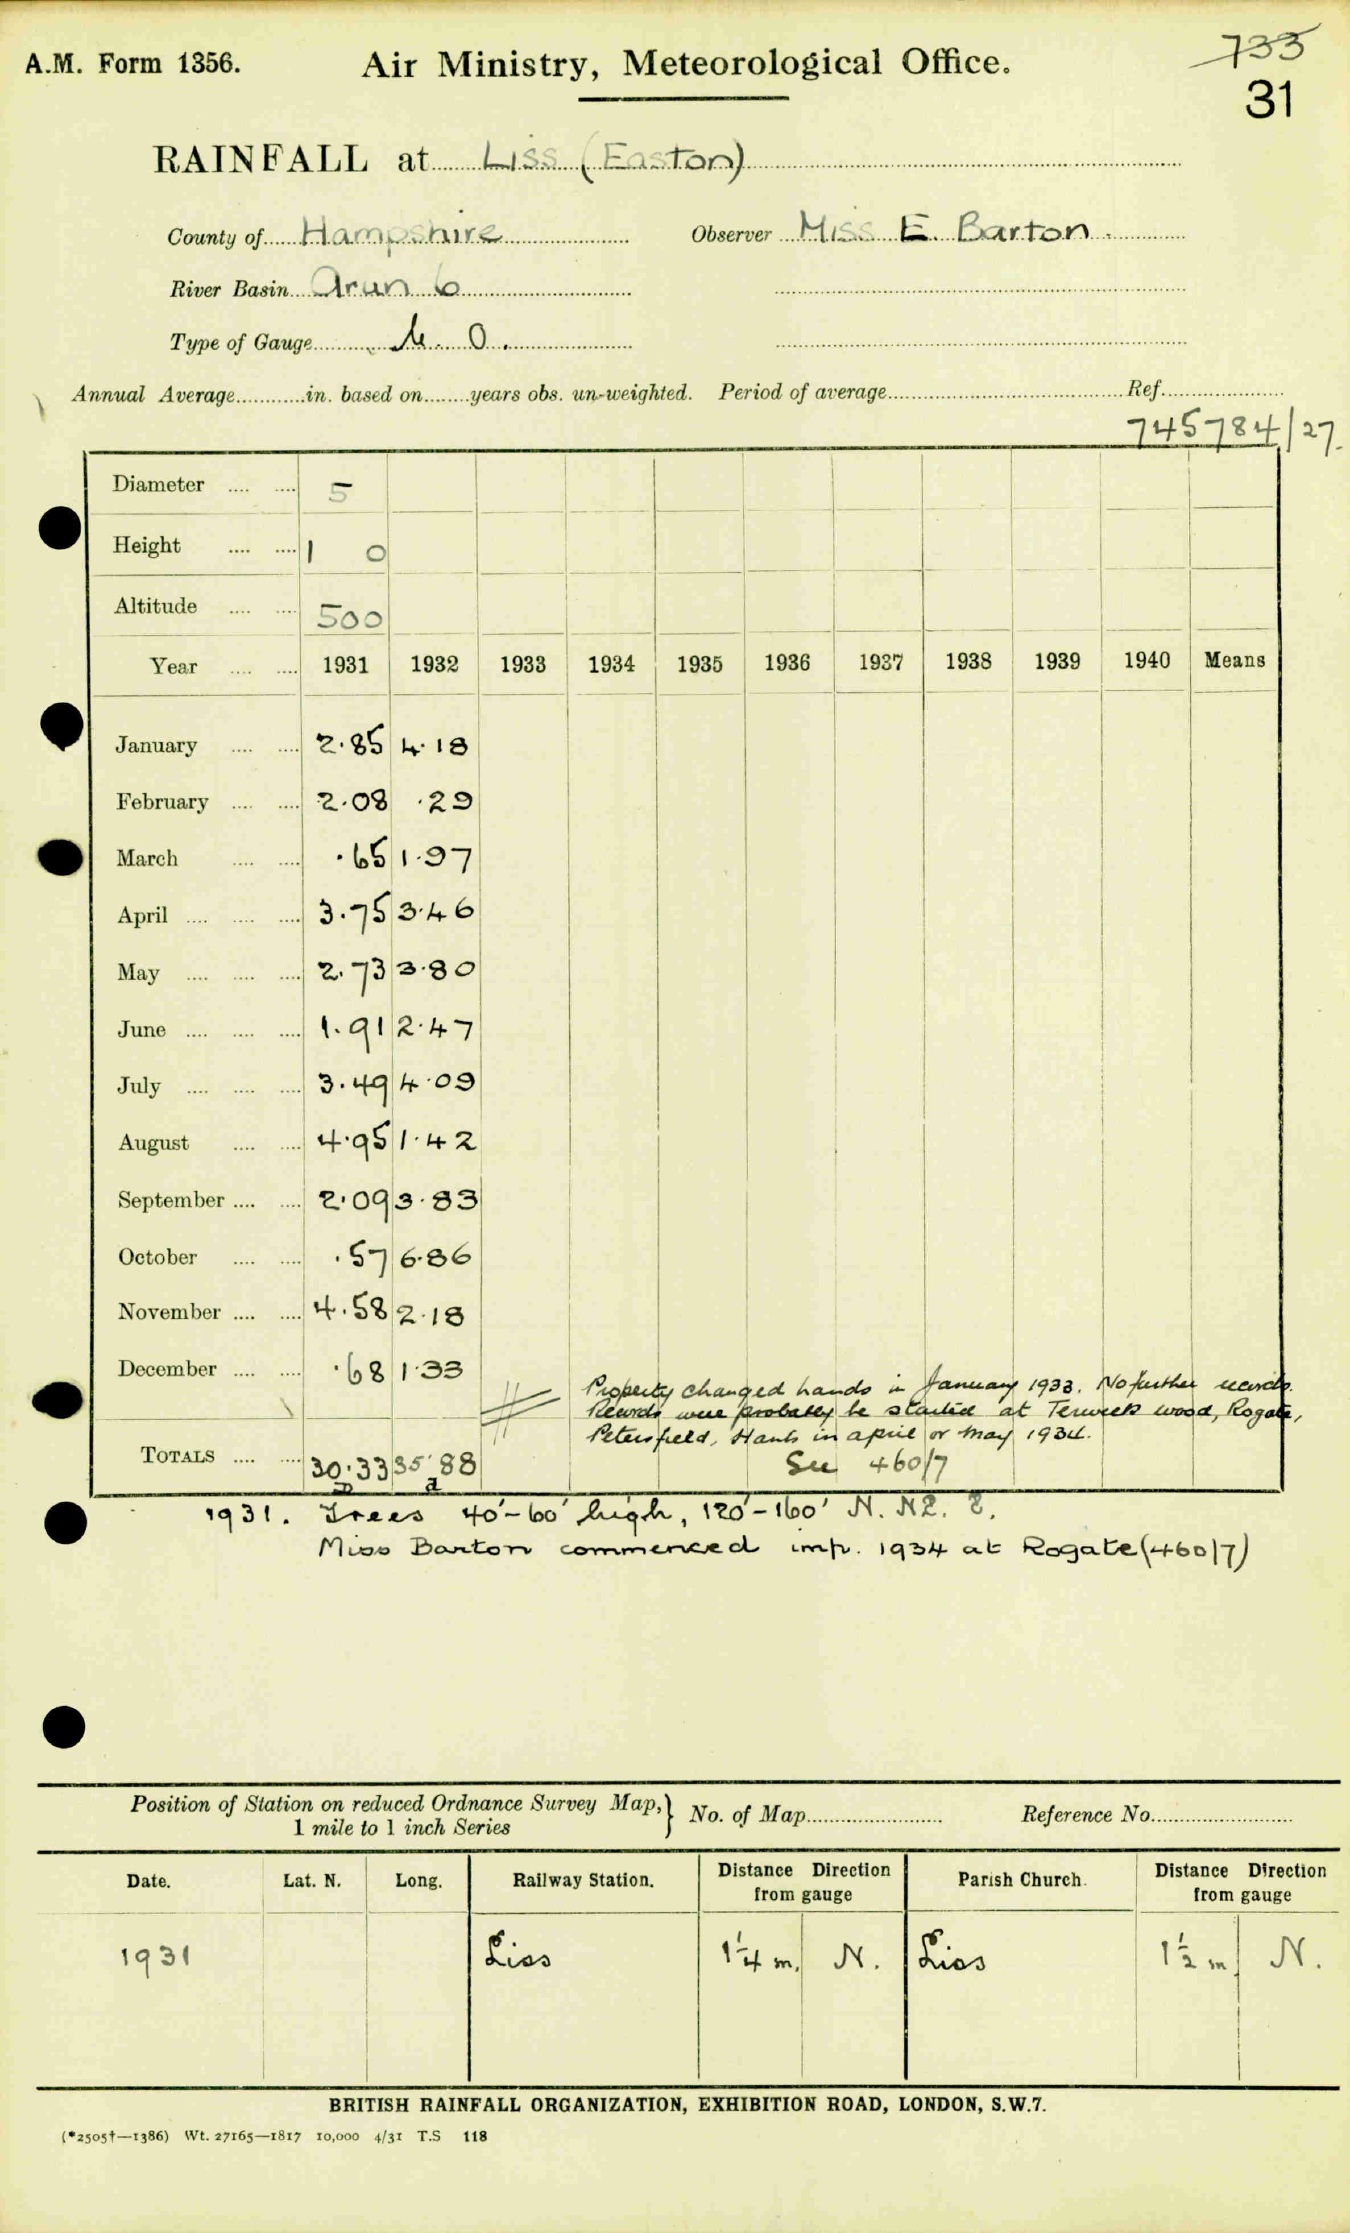 A.M. Form 1356.
Air Ministry, Meteorological Office.
733
31
RAINFALL at Liss (Easton)
County of Hampshire Observer Miss E. Barton.
River Basin Arun 6
Type of Gauge M. O.
Annual Average in. based on years obs. un-weighted. Period of average Ref.
745784/27.
Diameter 5
Height 1 0
Altitude 500
Year 1931 1932 1933 1934 1935 1936 1937 1938 1939 1940 Means
January 2.85 4.18
February 2.08 .29
March .65 1.97
April 3.75 3.46
May 2.73 3.80
June 1.91 2.47
July 3.49 4.09
August 4.95 1.42
September 2.09 3.83
October .57 6.86
November 4.58 2.18
December .68 1.33
Property changed hands in January 1933. No further records.
Records were probably be started at Terwick wood, Rogate,
Petersfield, Hants in april or may 1934.
TOTALS 30.33 35.88
See 460/7
1931. Trees 40'-60' high, 120'-160' N. NE. E.
Miss Barton commenced imp. 1934 at Rogate (460/7)
Position of Station on reduced Ordnance Survey Map,} No. of Map Reference No.
1 mile to 1 inch Series
Date. Lat. N. Long. Railway Station. Distance Direction from gauge Parish Church. Distance Direction from gauge
1931 Liss 1¼ m. N. Liss 1½ m. N.
BRITISH RAINFALL ORGANIZATION, EXHIBITION ROAD, LONDON, S.W.7.
(*2505†—1386) Wt. 27165—1817 10,000 4/31 T.S 118